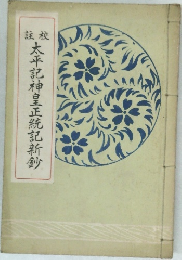 校註
太平記神皇正統記新鈔